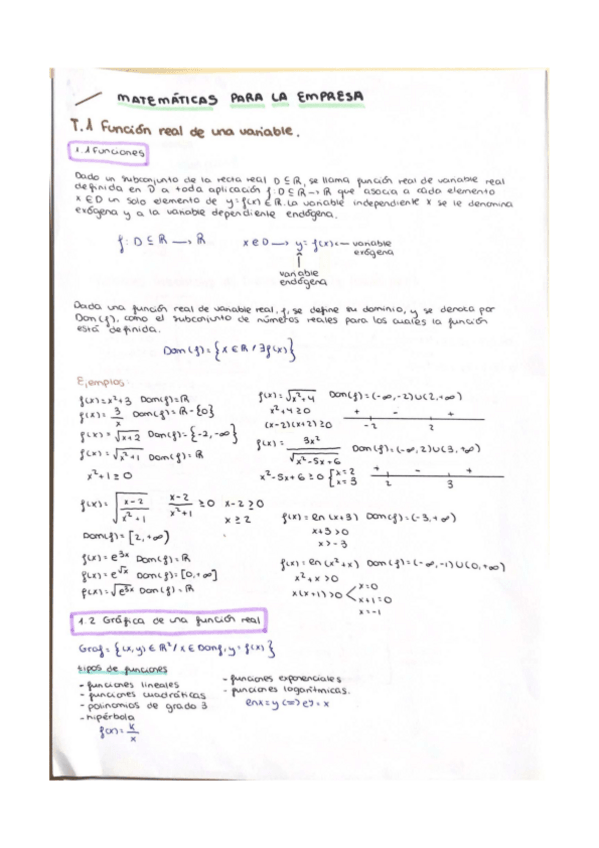 MATEMÁTICAS PARA LA EMPRESA
T.1 Función real de una variable.
1.1 Funciones
Dado un subconjunto de la recta real D ⊆ ℝ, se llama función real de variable real
definida en D a toda aplicación f: D ⊆ ℝ → ℝ que asocia a cada elemento
x ∈ D un solo elemento de y = f(x) ∈ ℝ. La variable independiente x se le denomina
exógena y a la variable dependiente endógena.
f: D ⊆ ℝ → ℝ x ∈ D → y = f(x) ← variable
exógena
↑
variable
endógena
Dada una función real de variable real, f, se define su dominio, y se denota por
Dom(f), como el subconjunto de números reales para los cuales la función
está definida.
Dom(f) = {x ∈ ℝ / ∃ f(x)}
Ejemplos:
f(x) = x²+3 Dom(f) = ℝ
f(x) = 3/x Dom(f) = ℝ - {0}
f(x) = √(x+2) Dom(f) = {-2, -∞}
f(x) = √(x²+1) Dom(f) = ℝ
x²+1 ≥ 0
f(x) = √(x²+4) Dom(f) = (-∞, -2) ∪ (2, +∞)
x²+4 ≥ 0
(x-2)(x+2) ≥ 0
+ - +
-2 2
f(x) = 3x²/√(x²-5x+6) Dom(f) = (-∞, 2) ∪ (3, +∞)
x²-5x+6 ≥ 0 { x=2 x=3
+ - +
2 3
f(x) = √((x-2)/(x²+1)) (x-2)/(x²+1) ≥ 0 x-2 ≥ 0
x ≥ 2
Dom(f) = [2, +∞)
f(x) = ln(x+3) Dom(f) = (-3, +∞)
x+3 > 0
x > -3
f(x) = e^3x Dom(f) = ℝ
f(x) = e^√x Dom(f) = [0, +∞]
f(x) = √(e^5x) Dom(f) = ℝ
f(x) = ln(x²+x) Dom(f) = (-∞, -1) ∪ (0, +∞)
x²+x > 0
x(x+1) > 0 < x=0
x+1=0
x=-1
1.2 Gráfica de una función real
Graf = {(x,y) ∈ ℝ² / x ∈ Domf, y = f(x)}
tipos de funciones
- funciones lineales
- funciones cuadráticas
- polinomios de grado 3
- hipérbola
f(x) = k/x
- funciones exponenciales
- funciones logarítmicas.
lnx = y <=> e^y = x